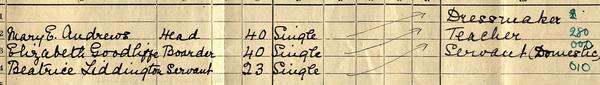 1 Dressmaker
2 Mary E. Andrews Head 40 Single Teacher 280
3 Elizabeth Goodliffe Boarder 40 Single Servant (Domestic)
4 Beatrice Liddington Servant 23 Single 010